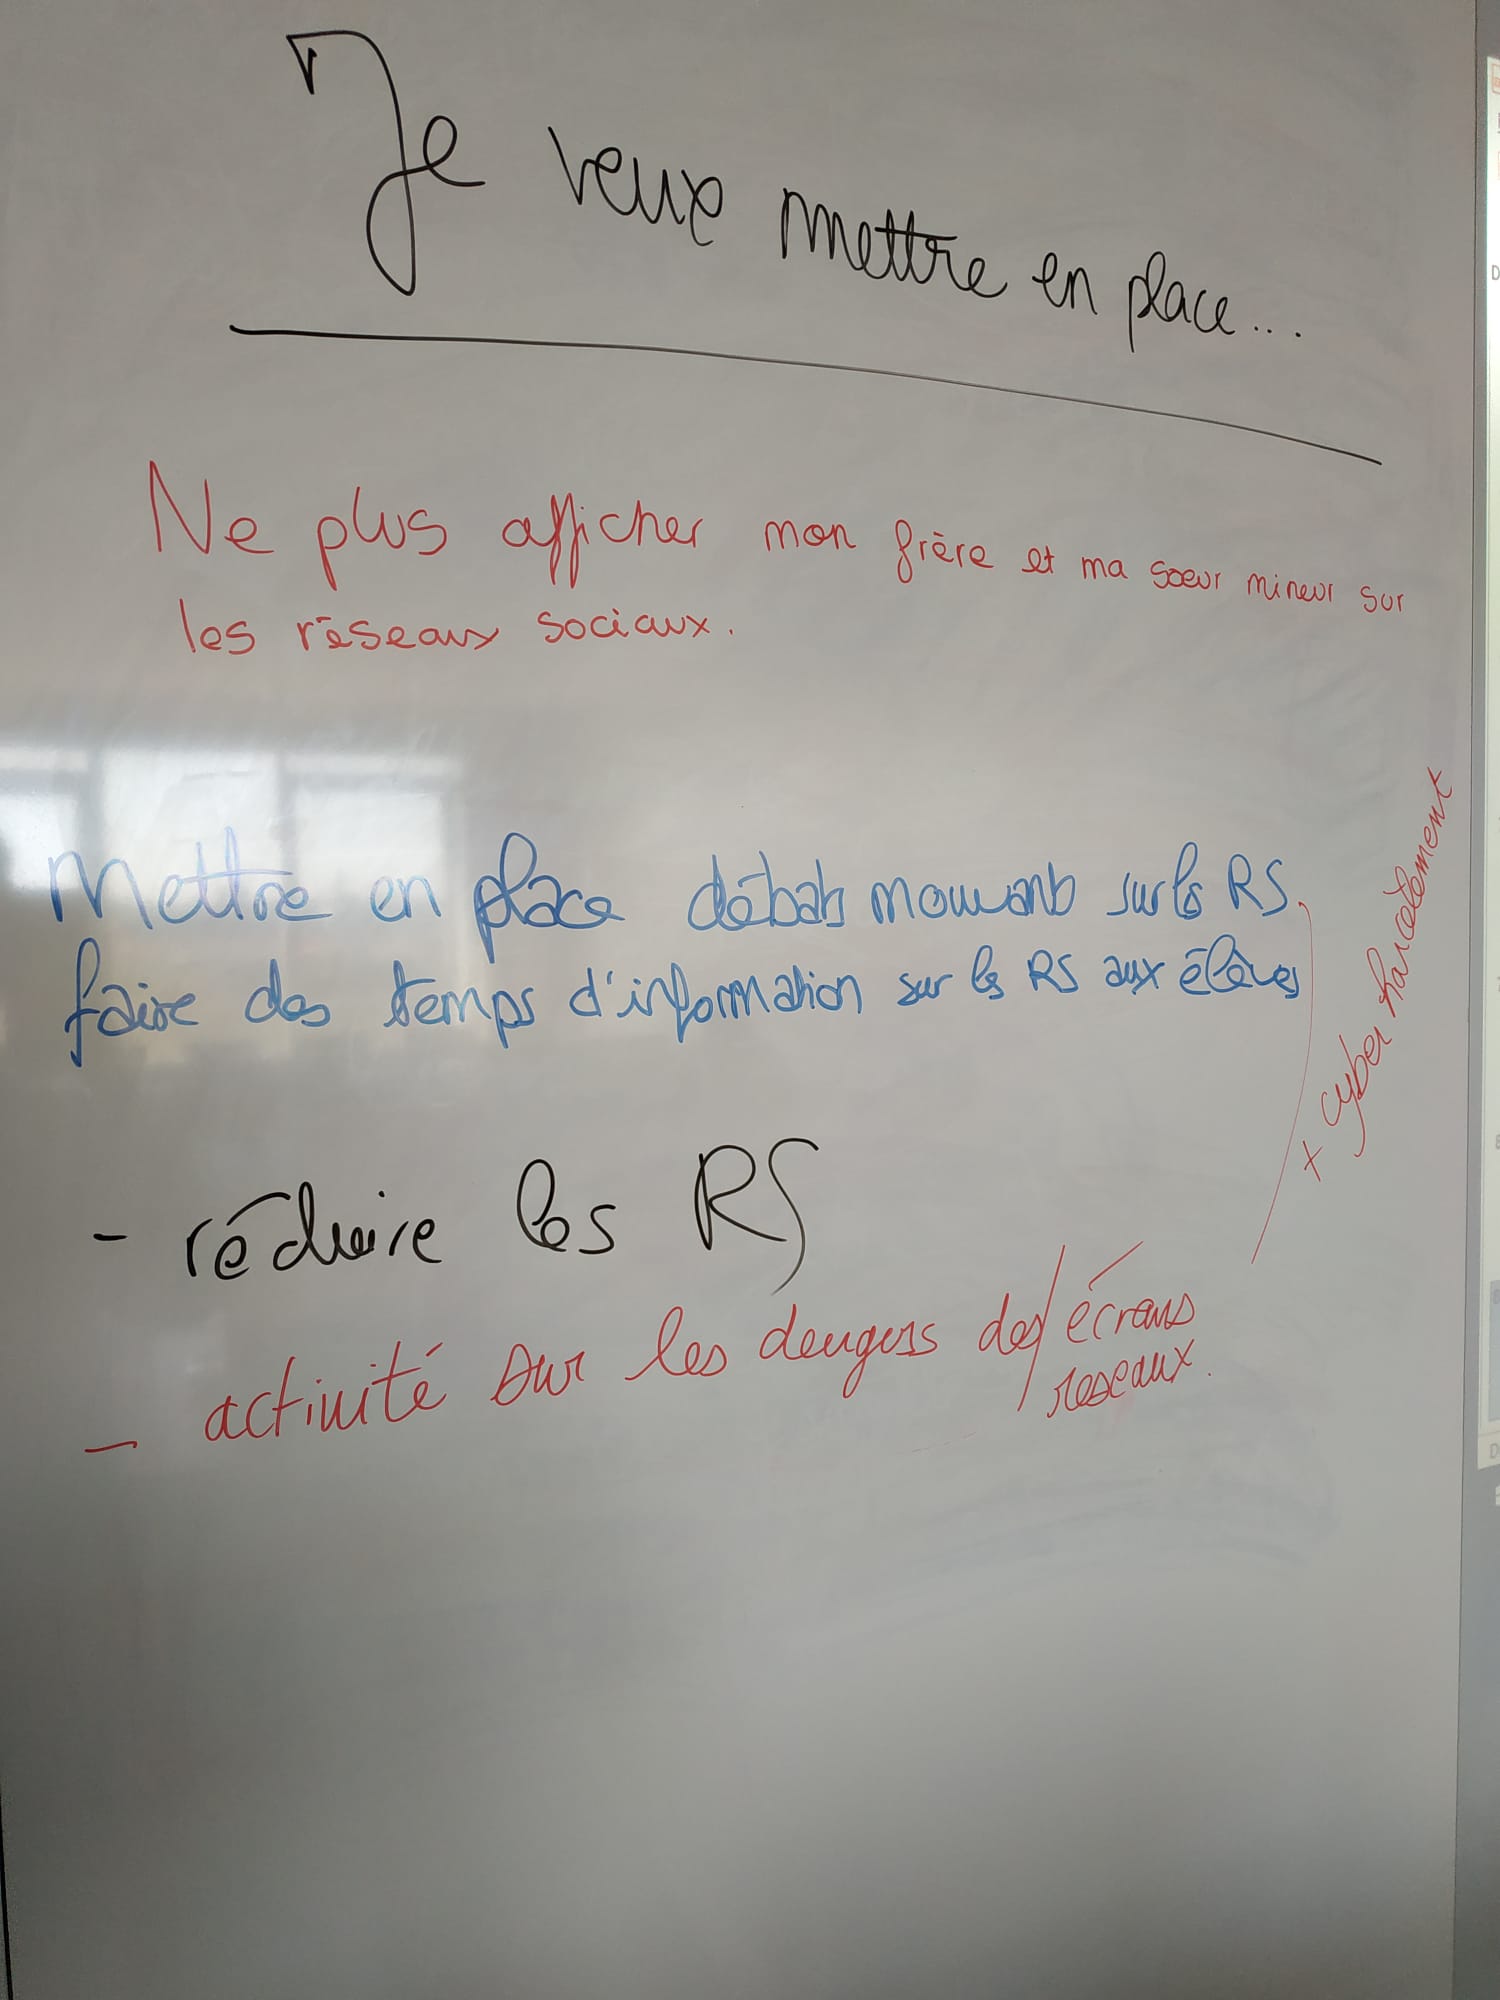 Je veux mettre en place...
Ne plus afficher mon frère et ma soeur mineur sur
les réseaux sociaux.
Mettre en place débats mouvants sur les RS,
faire des temps d'information sur les RS aux élèves
+ cyber harcèlement
- réduire les RS
- activité sur les dengers des/écrans
reseaux.